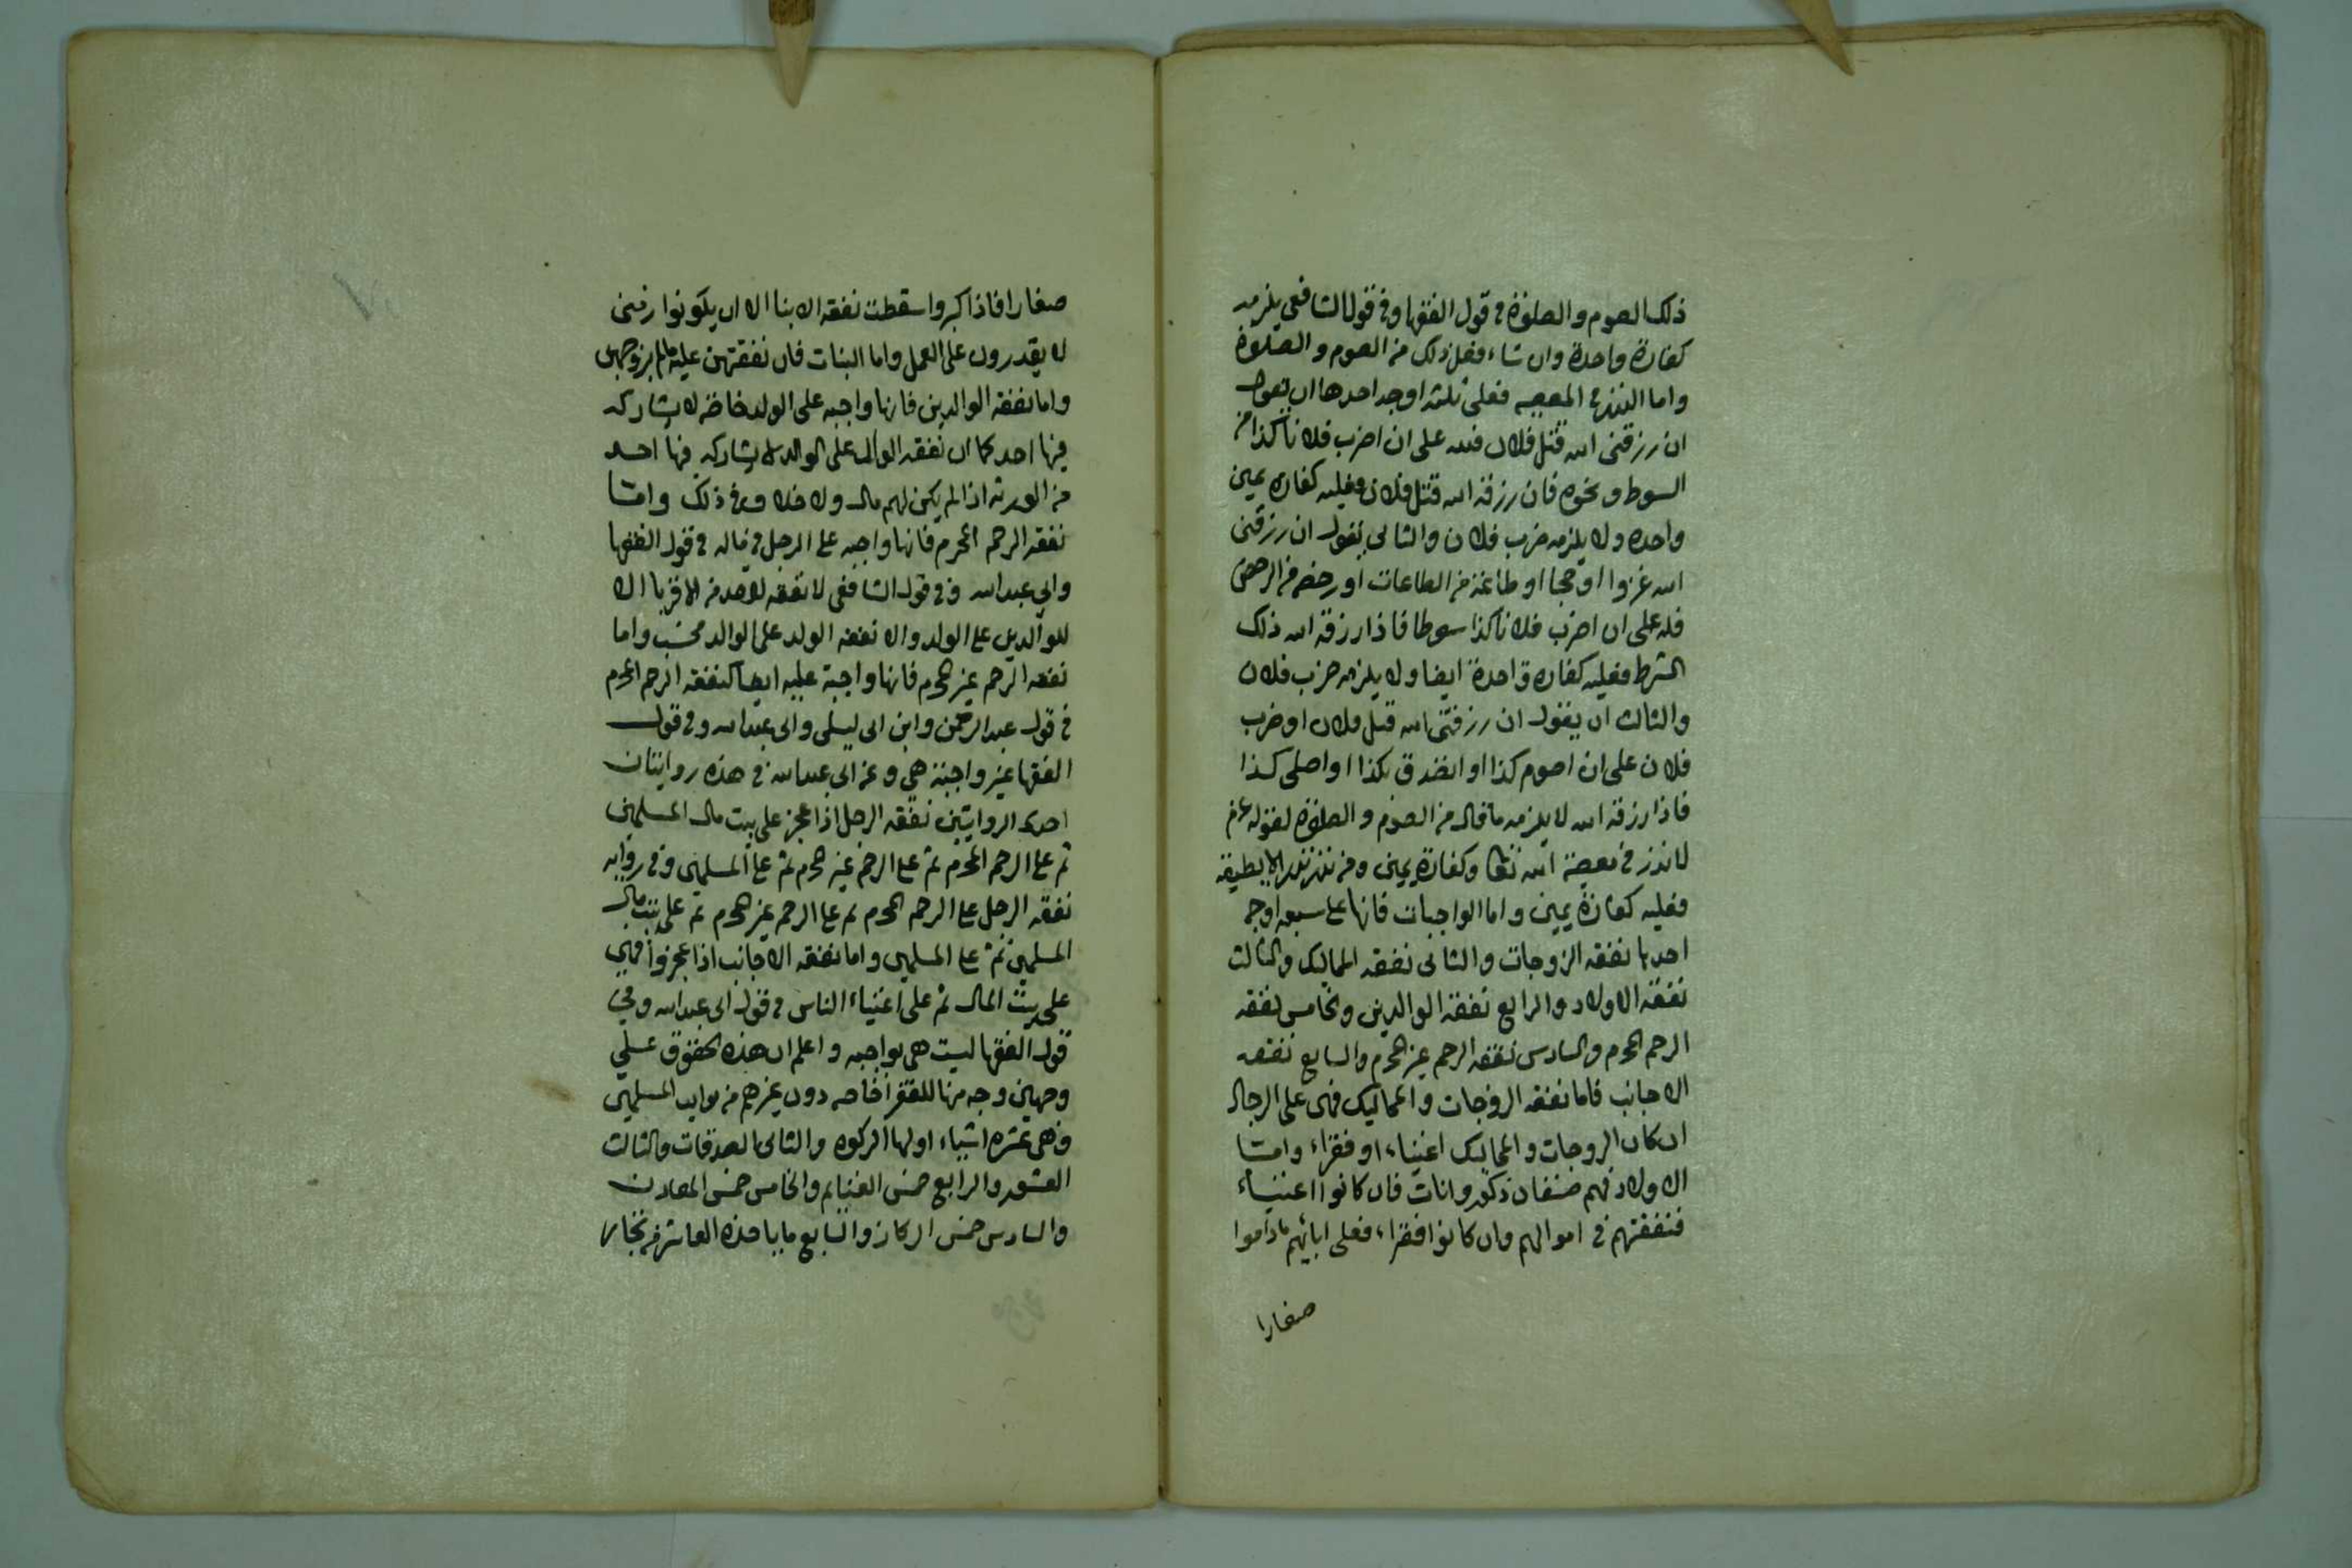 ذلك الصوم والصلوة فى قول الفقها وفى قول الشافعى يلزمه
كفارة واحدة وان شاء فعل ذلك من الصوم والصلوة
واما النذر فى المعصيه فعلى ثلثه اوجه احدها ان يقول
ان رزقنى الله قتل فلان فلله على ان اضرب فلانا كذا من
السوط ونحوه فان رزقه الله قتل فلان فعليه كفاره يمين
واحده ولا يلزمه ضرب فلان والثانى يقول ان رزقنى
الله غزوا او حجا او طاعة من الطاعات او رخصه من الرخص
فلله على ان اضرب فلانا كذا سوطا فاذا رزقه الله ذلك
الشرط فعليه كفاره واحدة ايضا ولا يلزمه ضرب فلان
والثالث ان يقول ان رزقنى الله قتل فلان او ضرب
فلان على ان اصوم كذا او اتصدق بكذا او اصلى كذا
فاذا رزقه الله لا يلزمه ما قال من الصوم والصلوة لقوله عم
لا نذر فى معصية الله تعا وكفارة يمين ومن نذر نذرا لا يطيقه
فعليه كفارة يمين واما الواجبات فانها على سبعه اوجه
احديها نفقه الزوجات والثانى نفقه المماليك والثالث
نفقه الاولاد والرابع نفقة الوالدين والخامس نفقه
الرحم المحرم والسادس نفقه الرحم غير المحرم والسابع نفقه
الاجانب فاما نفقه الزوجات والمماليك فهى على الرجال
ان كان الزوجات والمماليك اغنياء او فقراء وامـا
الاولاد فهم صنفان ذكور واناث فان كانوا اغنياء
فنفقتهم فى اموالهم وان كانوا فقراء فعلى ابائهم ماداموا
صغارا
صغارا فاذا كبروا سقطت نفقه الابنا الا ان يكونوا زمنى
لا يقدرون على العمل واما البنات فان نفقتهن عليه مالم يزوجهن
واما نفقه الوالدين فانها واجبه على الولد خاصة لا يشاركه
فيها احد كما ان نفقه الولد على الوالد لا يشاركه فيها احـد
من الورثه اذا لم يكن لهم مال ولا خلاف فى ذلك وامـا
نفقه الرحم المحرم فانها واجبه على الرجل فى ماله فى قول الفقها
وابى عبد الله وفى قول الشافعى لا نفقه لاحد من الاقربا الا
للوالدين على الولد والا نفقه الولد على الوالد فحسب واما
نفقه الرحم غير المحرم فانها واجبة عليه ايضا كنفقه الرحم المحرم
فى قول عبد الرحمن وابن ابى ليلى وابى عبد الله وفى قول
الفقها غير واجبة هى وعن ابى عبد الله فى هذه روايتان
احدى الروايتين نفقه الرجل اذا عجز على بيت مال المسلمين
ثم على الرحم المحرم ثم على الرحم غير محرم ثم على المسلمين وفى روايه
نفقه الرجل على الرحم المحرم ثم على الرحم غير المحرم ثم على بيت مال
المسلمين ثم على المسلمين واما نفقه الاجانب اذا عجزوا فهى
على بيت المال ثم على اغنياء الناس فى قول ابى عبد الله وفى
قول الفقها ليست هى بواجبه واعلم ان هذه الحقوق عـلى
وجهين وجه منها للفقرا خاصه دون غيرهم من المسلمين
وهى عشره اشياء اولها الزكوه والثانى الصدقات والثالث
العشور والرابع خمس الغنايم والخامس خمس المعادن
والسادس خمس الركاز والسابع ما ياخذه العاشر من تجار